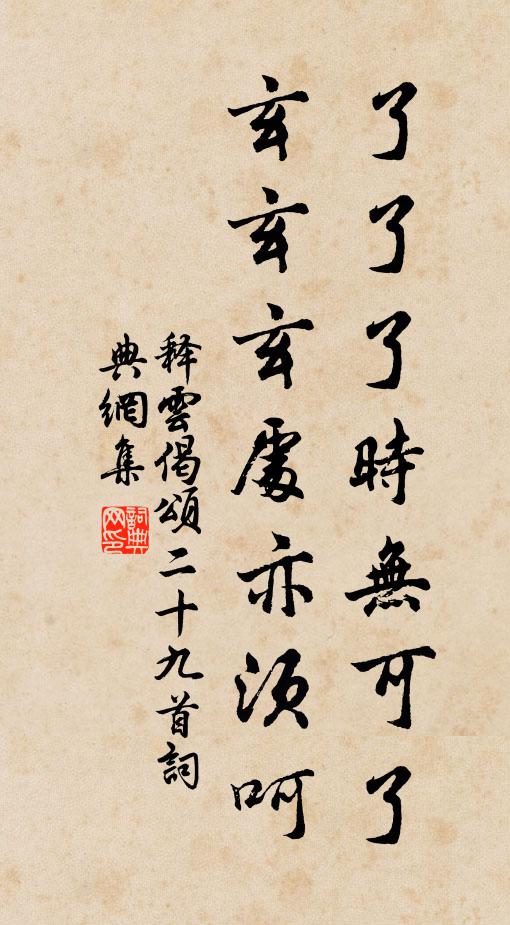 了了了時無可了
玄玄玄處亦須呵
释雲偈頌二十九首詞
典網集
詞典網印